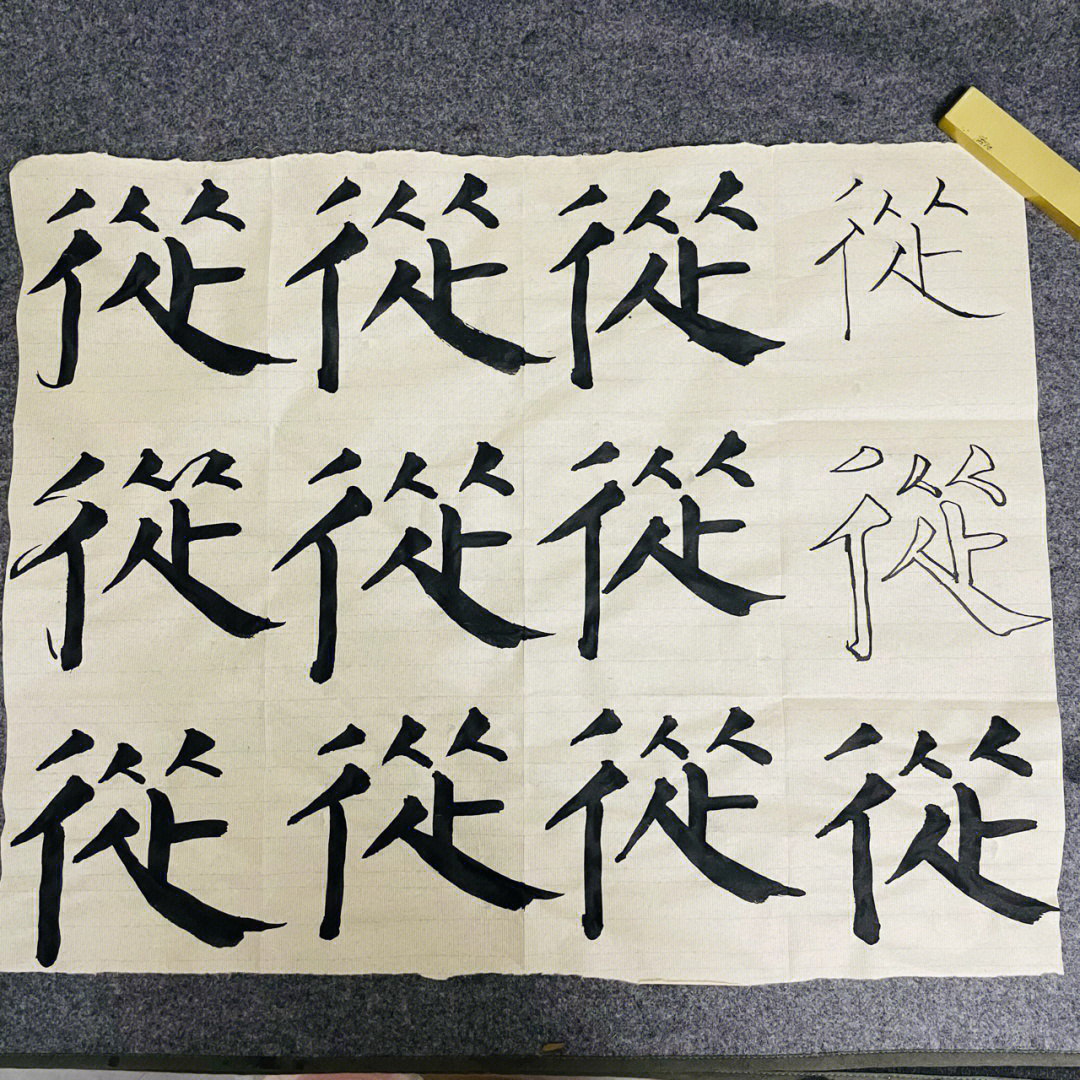 從從從從
從從從從
從從從從